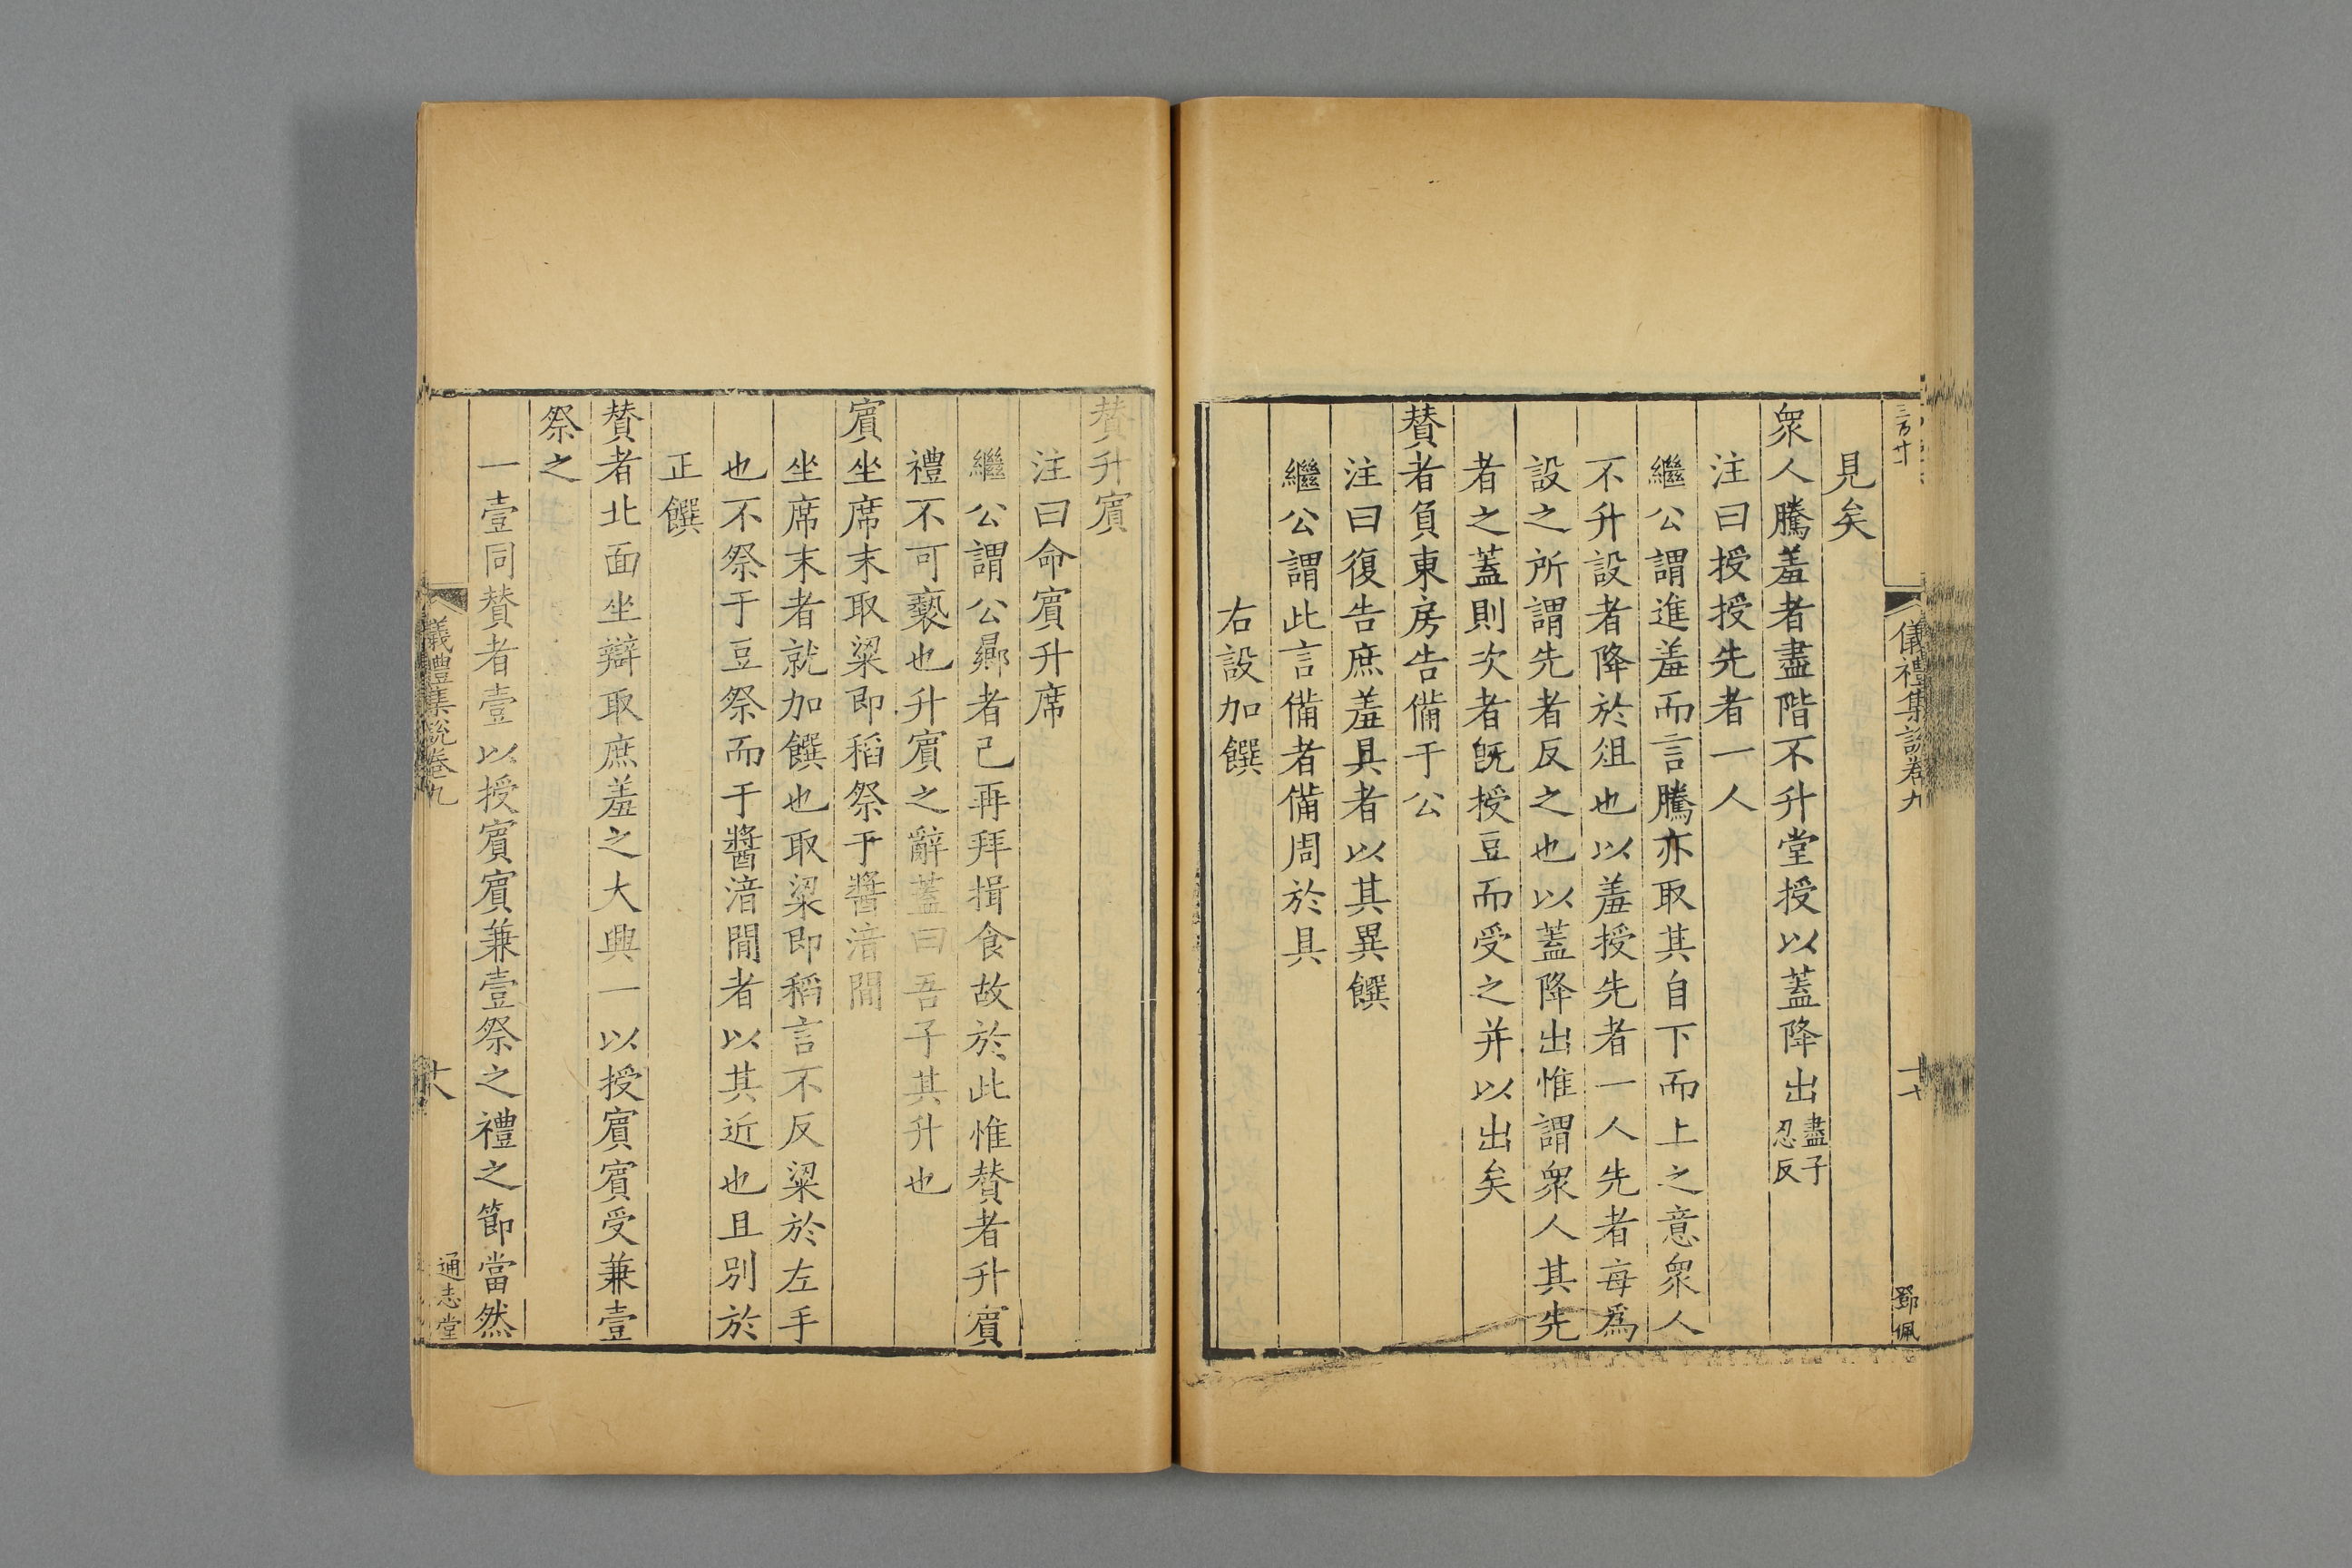 儀禮集說卷九
十七
鄧佩
見矣
衆人騰羞者盡階不升堂授以蓋降出盡子忍反
注曰授授先者一人
繼公謂進羞而言騰亦取其自下而上之意衆人
不升設者降於俎也以羞授先者一人先者每爲
設之所謂先者反之也以蓋降出惟謂衆人其先
者之蓋則次者旣授豆而受之并以出矣
贊者負東房告備于公
注曰復告庶羞具者以其異饌
繼公謂此言備者備周於具
右設加饌
贊升賓
注曰命賓升席
繼公謂公曏者已再拜揖食故於此惟贊者升賓
禮不可褻也升賓之辭蓋曰吾子其升也
賓坐席末取粱即稻祭于醬湆間
坐席末者就加饌也取粱即稻言不反粱於左手
也不祭于豆祭而于醬湆間者以其近也且別於
正饌
贊者北面坐辯取庶羞之大興一以授賓賓受兼壹
祭之
一壹同贊者壹以授賓賓兼壹祭之禮之節當然
儀禮集說卷九
十八
通志堂